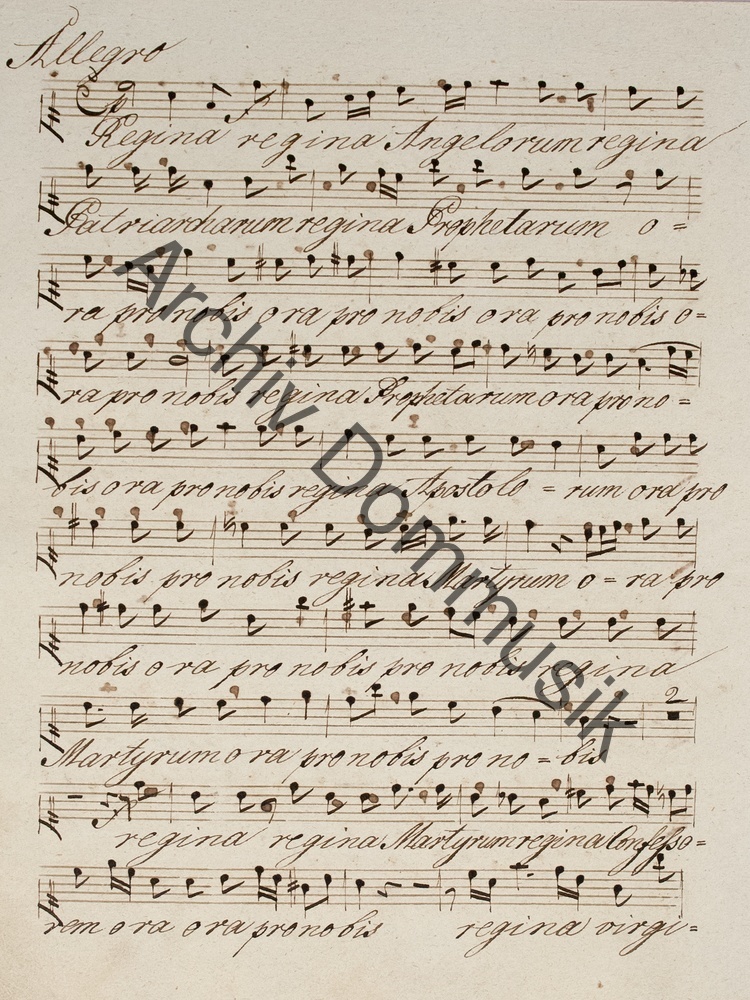 Allegro
p
Regina regina Angelorum regina
Patriarcharum regina Prophetarum o=
ra pro nobis ora pro nobis ora pro nobis o=
ra pro nobis regina Prophetarum ora pro no=
bis ora pro nobis regina Apostolo=rum ora pro
nobis pro nobis regina Martyrum o=ra pro
nobis ora pro nobis pro nobis regina
2
Martyrum ora pro nobis pro no=bis
regina regina Martyrum regina Confesso=
rem ora ora pro nobis regina virgi=
Archiv Dommusik